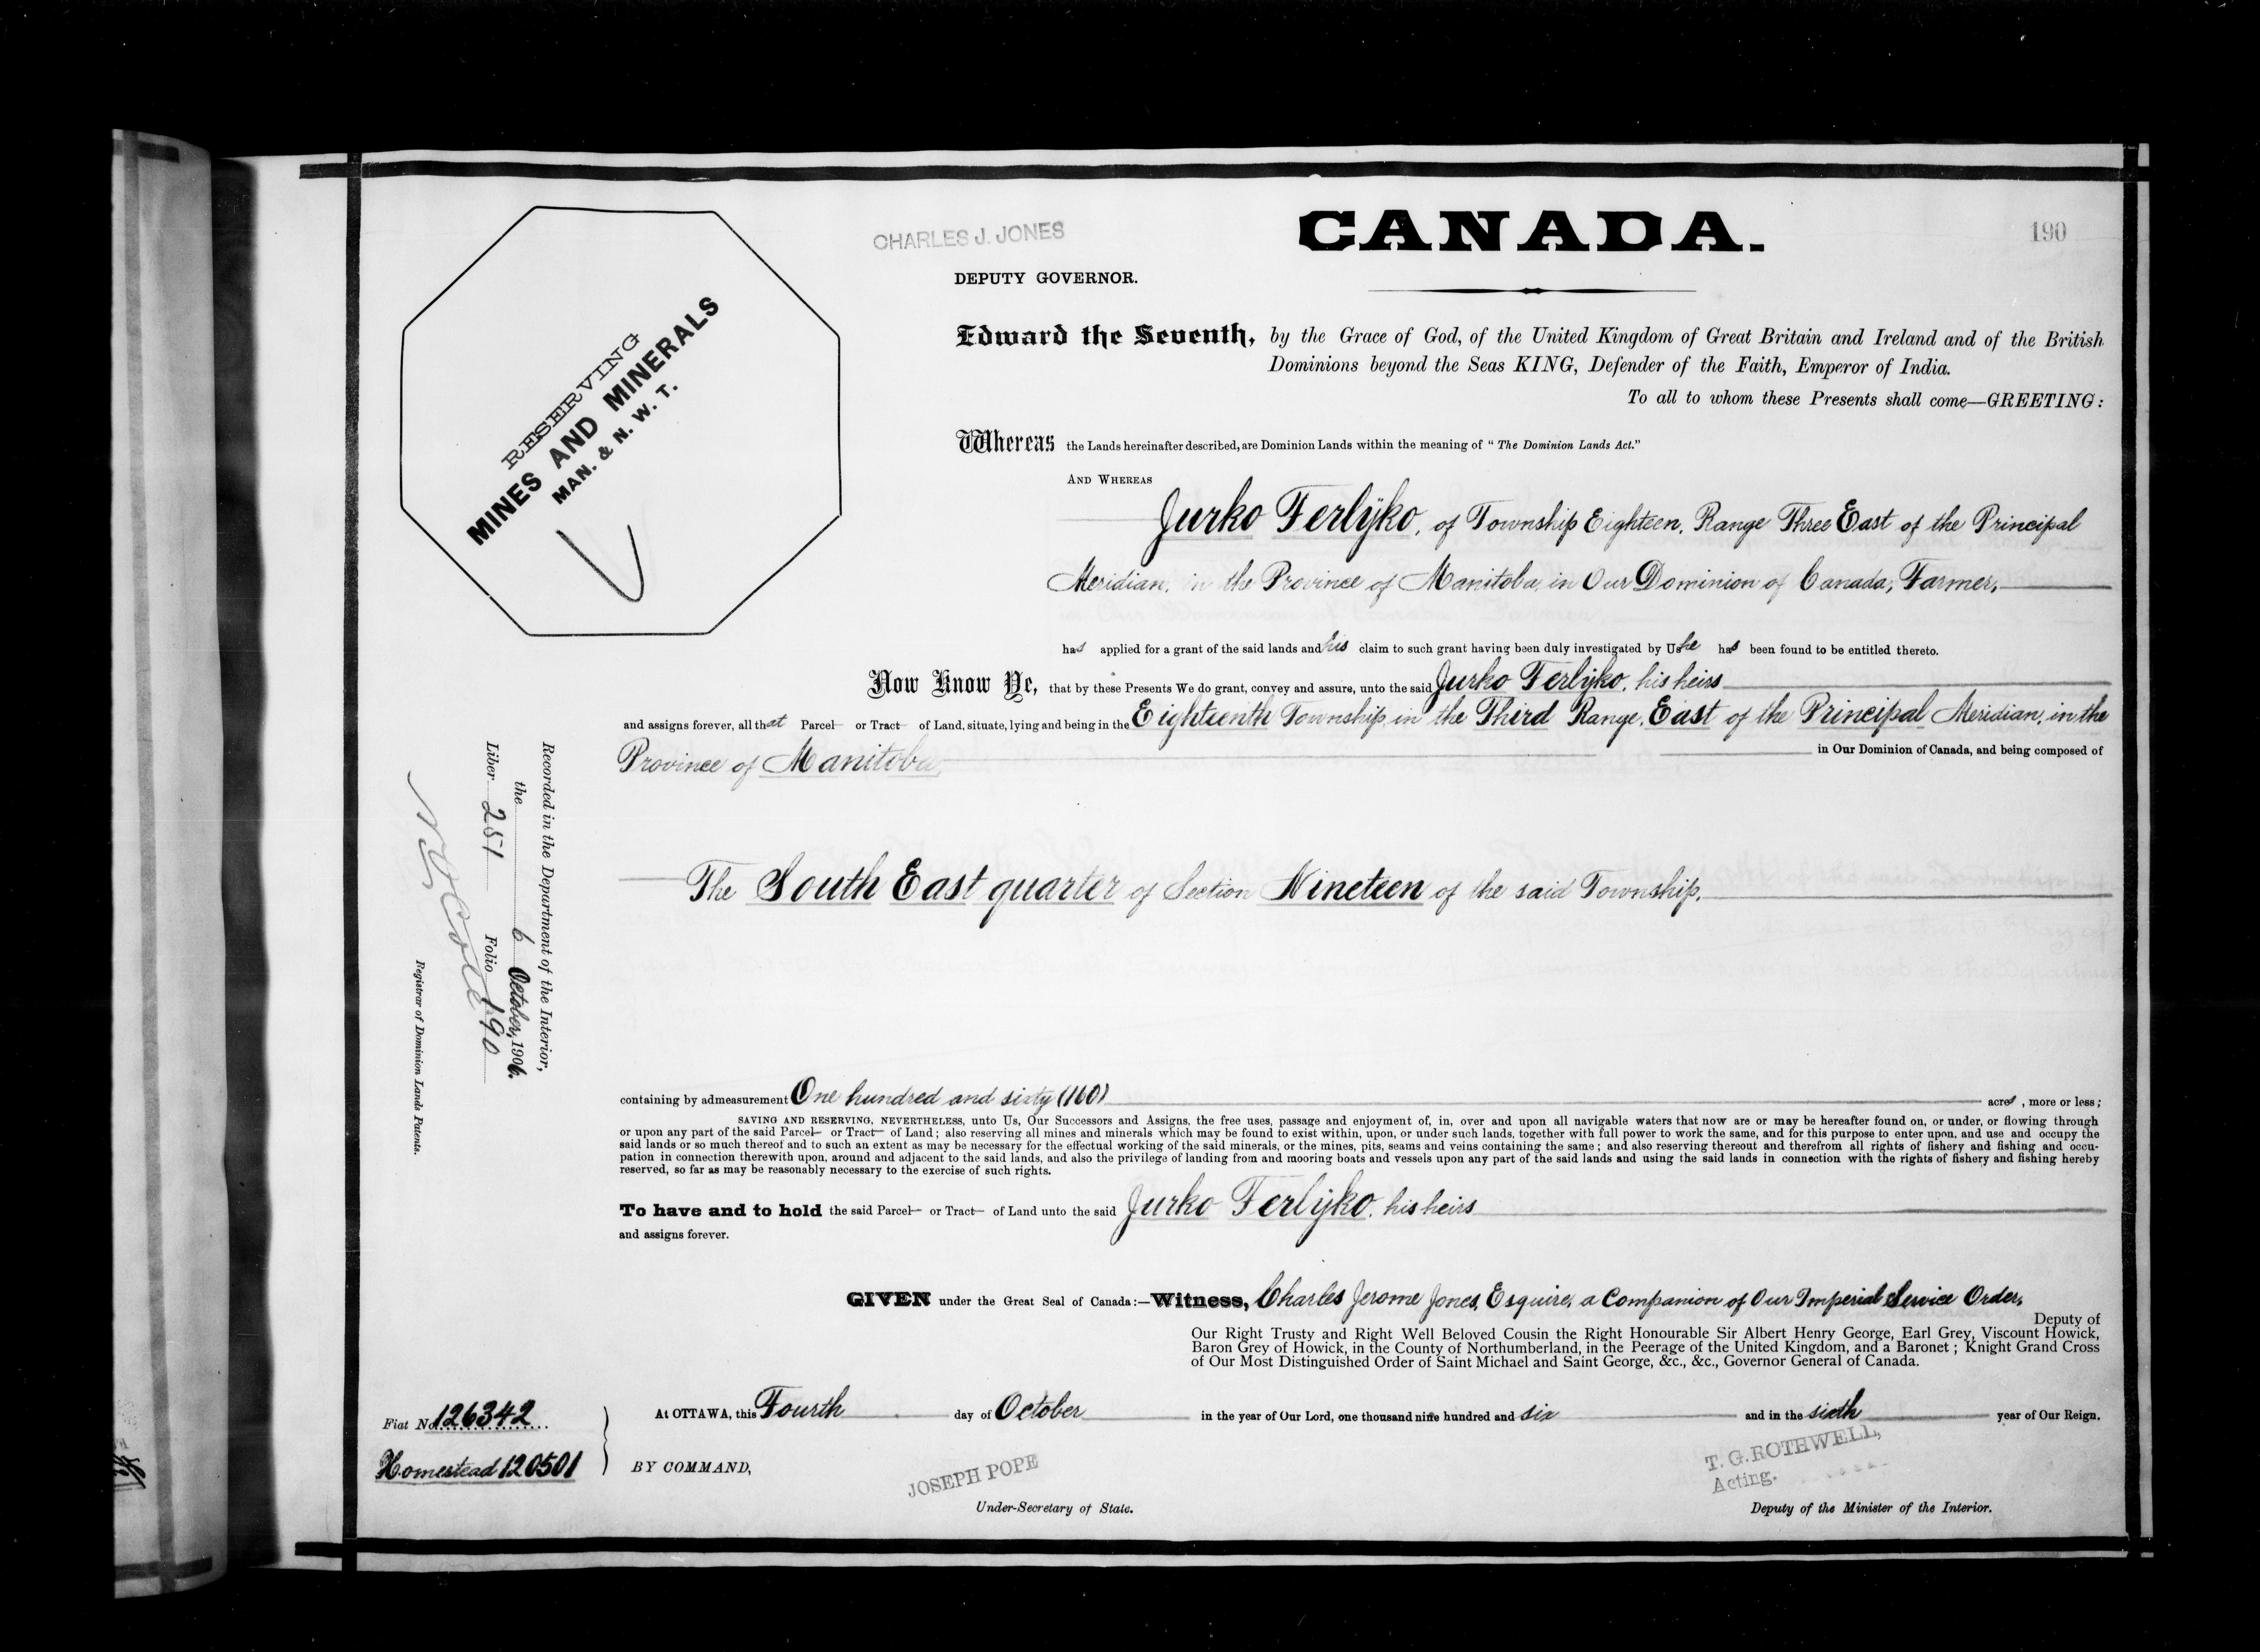 CHARLES J. JONES
CANADA.
190
DEPUTY GOVERNOR.
RESERVING
MINES AND MINERALS
MAN. & N. W. T.
Edward the Seventh, by the Grace of God, of the United Kingdom of Great Britain and Ireland and of the British
Dominions beyond the Seas KING, Defender of the Faith, Emperor of India.
To all to whom these Presents shall come—GREETING:
Whereas the Lands hereinafter described, are Dominion Lands within the meaning of "The Dominion Lands Act."
AND WHEREAS
Jurko Ferlijko, of Township Eighteen, Range Three East of the Principal
Meridian, in the Province of Manitoba, in Our Dominion of Canada, Farmer,
has applied for a grant of the said lands and his claim to such grant having been duly investigated by Us he has been found to be entitled thereto.
Now Know Ye, that by these Presents We do grant, convey and assure, unto the said Jurko Ferlijko, his heirs
and assigns forever, all that Parcel or Tract of Land, situate, lying and being in the Eighteenth Township, in the Third Range, East of the Principal Meridian, in the
Province of Manitoba, in Our Dominion of Canada, and being composed of
The South East quarter of Section Nineteen of the said Township,
Recorded in the Department of the Interior,
the 6 October, 1906.
Liber 251 Folio 190
Registrar of Dominion Lands Patents.
containing by admeasurement One hundred and sixty (160) acres, more or less;
SAVING AND RESERVING, NEVERTHELESS, unto Us, Our Successors and Assigns, the free uses, passage and enjoyment of, in, over and upon all navigable waters that now are or may be hereafter found on, or under, or flowing through
or upon any part of the said Parcel or Tract of Land; also reserving all mines and minerals which may be found to exist within, upon, or under such lands, together with full power to work the same, and for this purpose to enter upon, and use and occupy the
said lands or so much thereof and to such an extent as may be necessary for the effectual working of the said minerals, or the mines, pits, seams and veins containing the same; and also reserving thereout and therefrom all rights of fishery and fishing and occu-
pation in connection therewith upon, around and adjacent to the said lands, and also the privilege of landing from and mooring boats and vessels upon any part of the said lands and using the said lands in connection with the rights of fishery and fishing hereby
reserved, so far as may be reasonably necessary to the exercise of such rights.
To have and to hold the said Parcel or Tract of Land unto the said Jurko Ferlijko, his heirs
and assigns forever.
GIVEN under the Great Seal of Canada:—Witness, Charles Jerome Jones, Esquire, a Companion of Our Imperial Service Order,
Deputy of
Our Right Trusty and Right Well Beloved Cousin the Right Honourable Sir Albert Henry George, Earl Grey, Viscount Howick,
Baron Grey of Howick, in the County of Northumberland, in the Peerage of the United Kingdom, and a Baronet; Knight Grand Cross
of Our Most Distinguished Order of Saint Michael and Saint George, &c., &c., Governor General of Canada.
Fiat No. 126342
Homestead 120501
At OTTAWA, this Fourth day of October in the year of Our Lord, one thousand nine hundred and six and in the sixth year of Our Reign.
BY COMMAND,
JOSEPH POPE
Under-Secretary of State.
T. G. ROTHWELL,
Acting.
Deputy of the Minister of the Interior.